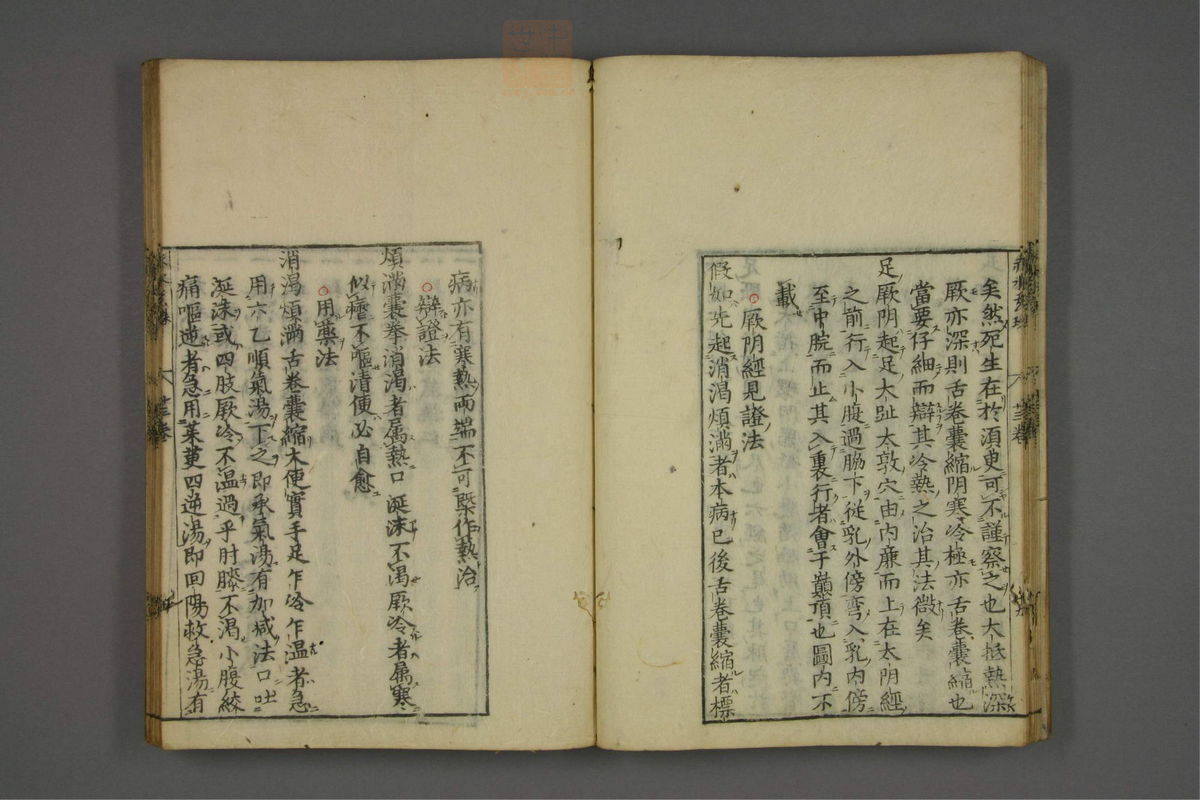 矣然死生在於須臾可不謹察之也大抵熱深
厥亦深則舌卷囊縮阴寒冷極亦舌卷囊縮也
當要仔細而辯其冷熱之治其法微矣
足厥阴起足大趾大敦穴由内廉而上在太阴經
之前行入小腹過脇下從乳外傍弯入乳内傍
至中脘而止其入裏行者會于巔頂也圖内不
載
○厥阴經見證法
假如先起消渴煩滿者本病已後舌卷囊縮者標
病亦有寒熱兩端不可槩作熱治
○辯證法
煩滿囊拳消渴者属熱口涎沫不渴厥冷者属寒
似瘧不嘔清便必自愈
○用藥法
消渴煩滿舌卷囊縮大便實手足乍冷乍温者急
用六乙順氣湯下之即承氣湯有加减法口吐
涎沫或四肢厥冷不温過乎肘膝不渴小腹絞
痛嘔逆者急用茱萸四逆湯即回陽救急湯有